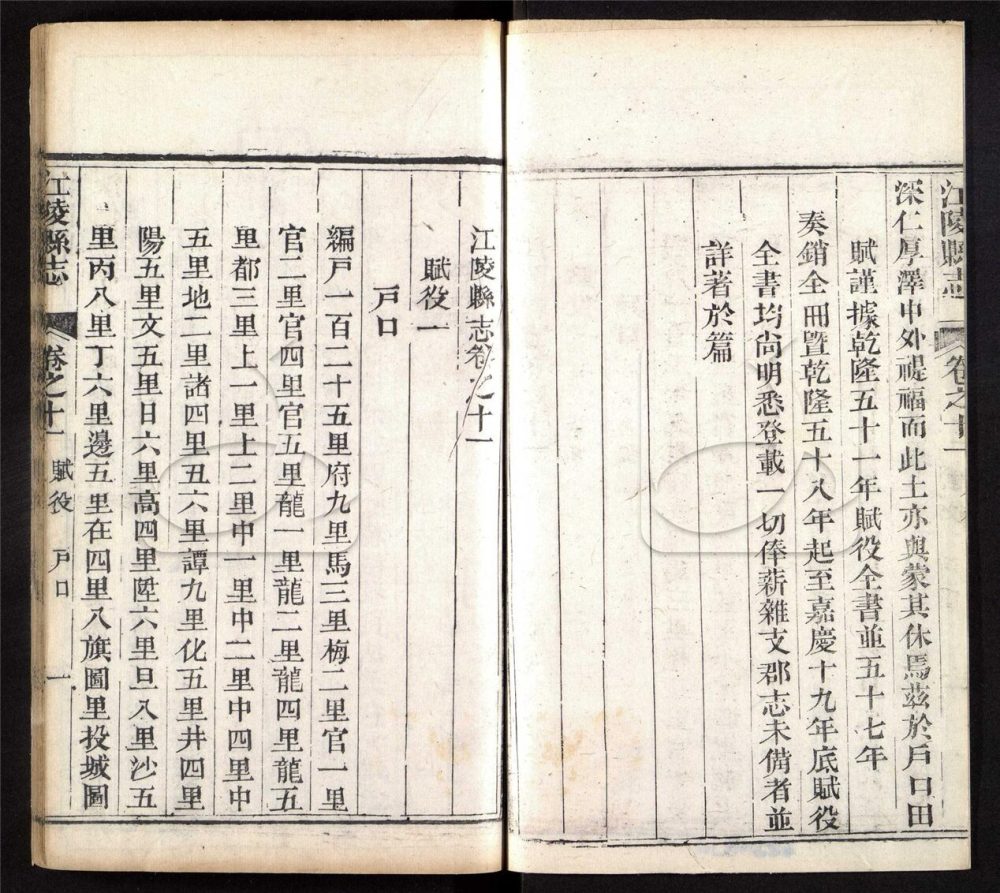 江陵縣志
卷之十一
深仁厚澤中外禔福而此土亦與蒙其休焉茲於戶口田
賦謹據乾隆五十一年賦役全書並五十七年
奏銷全冊暨乾隆五十八年起至嘉慶十九年底賦役
全書均尚明悉登載一切俸薪雜支郡志未備者並
詳著於篇
江陵縣志卷之十一
賦役一
戶口
編戶一百二十五里府九里馬三里梅二里官一里
官二里官四里官五里龍一里龍二里龍四里龍五
里都三里上一里上二里中一里中二里中四里中
五里地二里諸四里丑六里譚九里化五里井四里
陽五里文五里日六里高四里陞六里旦八里沙五
里丙八里丁六里邊五里在四里八旗圖里投城圖
江陵縣志
卷之十一 賦役 戶口 一